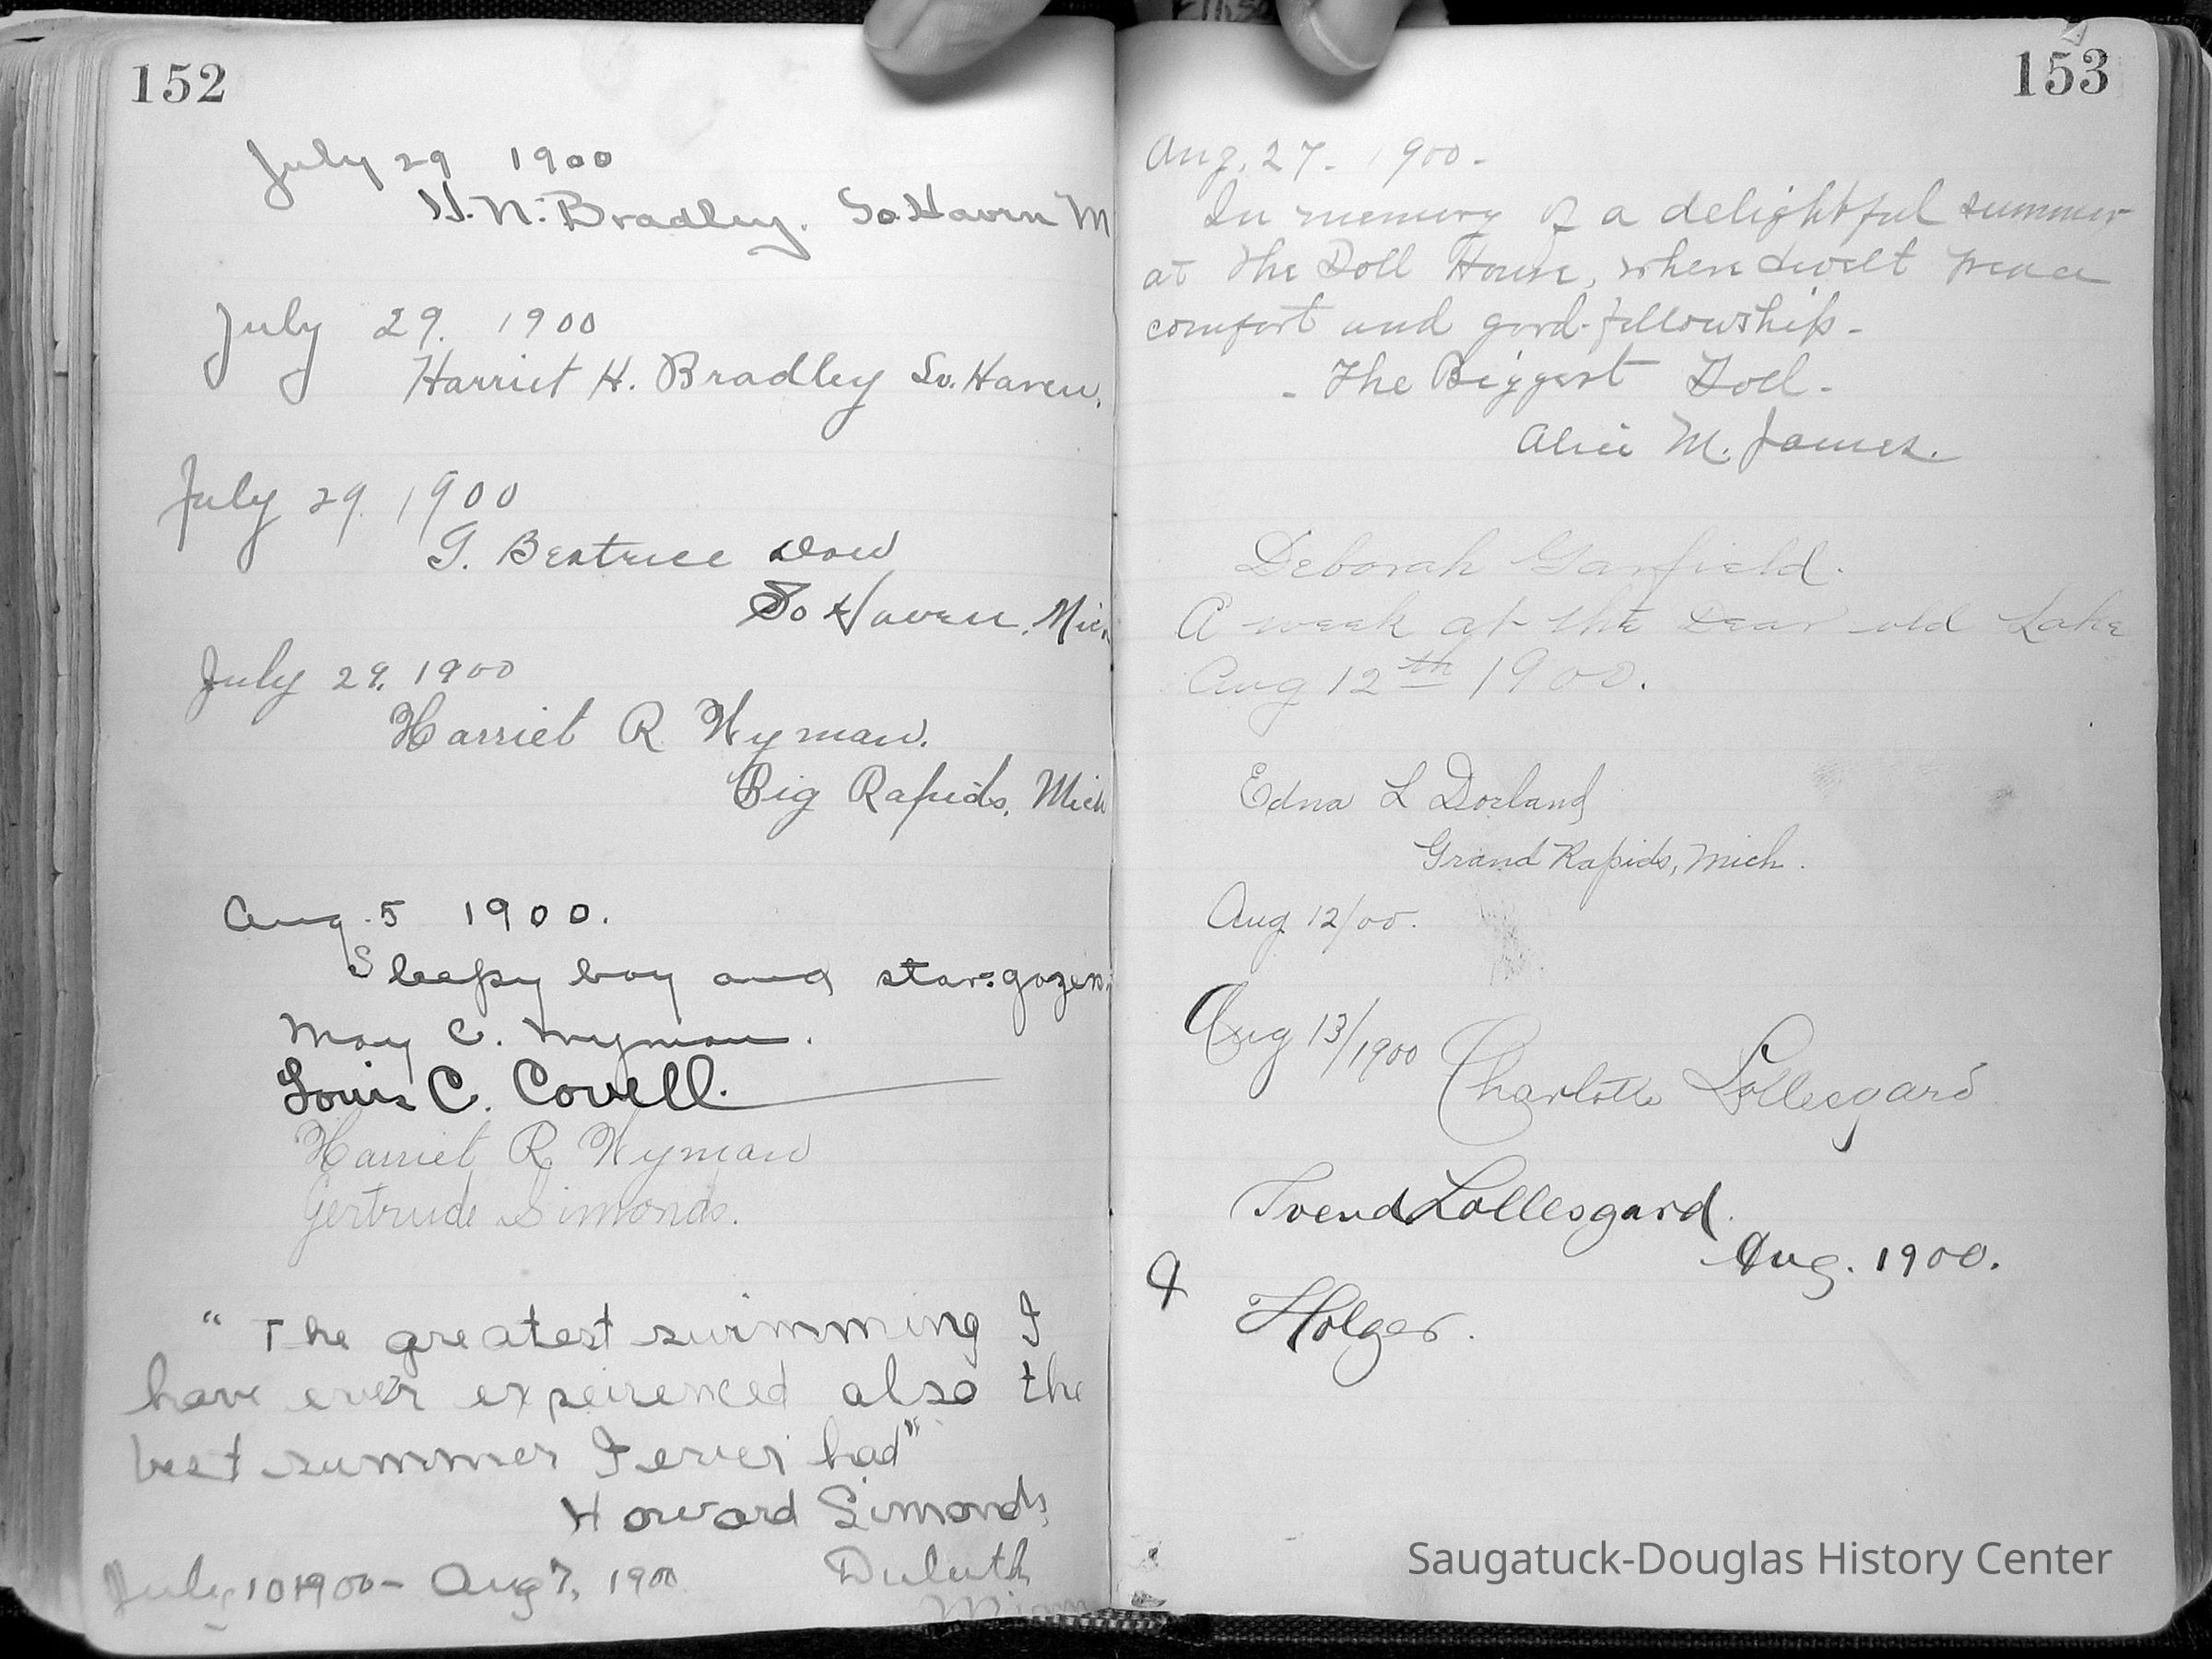 152
July 29 1900
H. N. Bradley. So. Haven M
July 29. 1900
Harriet H. Bradley So. Haven.
July 29. 1900
G. Beatrice Dow
So Haven. Mich
July 29. 1900
Harriet R Wyman.
Big Rapids. Mich
Aug. 5 1900.
Sleepy boy and star-gazers.
May C. Wyman.
Louis C. Covell.
Harriet R Wyman
Gertrude Simonds.
"The greatest swimming I
have ever expeirenced also the
best summer I ever had"
Howard Simonds
July 10 1900 - Aug 7, 1900 Duluth
Minn
153
Aug. 27. 1900.
In memory of a delightful summer
at the Doll House, where dwelt peace
comfort and good-fellowship -
- The Biggest Doll -
Alice M. James.
Deborah Garfield.
A week at the Dear old Lake
Aug 12th 1900.
Edna L Dorland
Grand Rapids, Mich.
Aug 12/00.
Aug 13/1900 Charlotte Lollesgard
Lollesgard.
Aug. 1900.
&
Holger.
Saugatuck-Douglas History Center